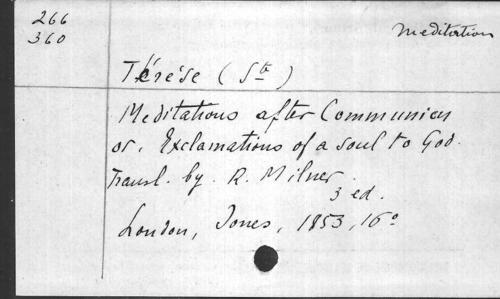 266
360
Meditation
Thérèse (Ste)
Meditations after Communion
or, Exclamations of a soul to God.
Transl. by R. Milner.
3 ed.
London, Jones, 1853, 16°